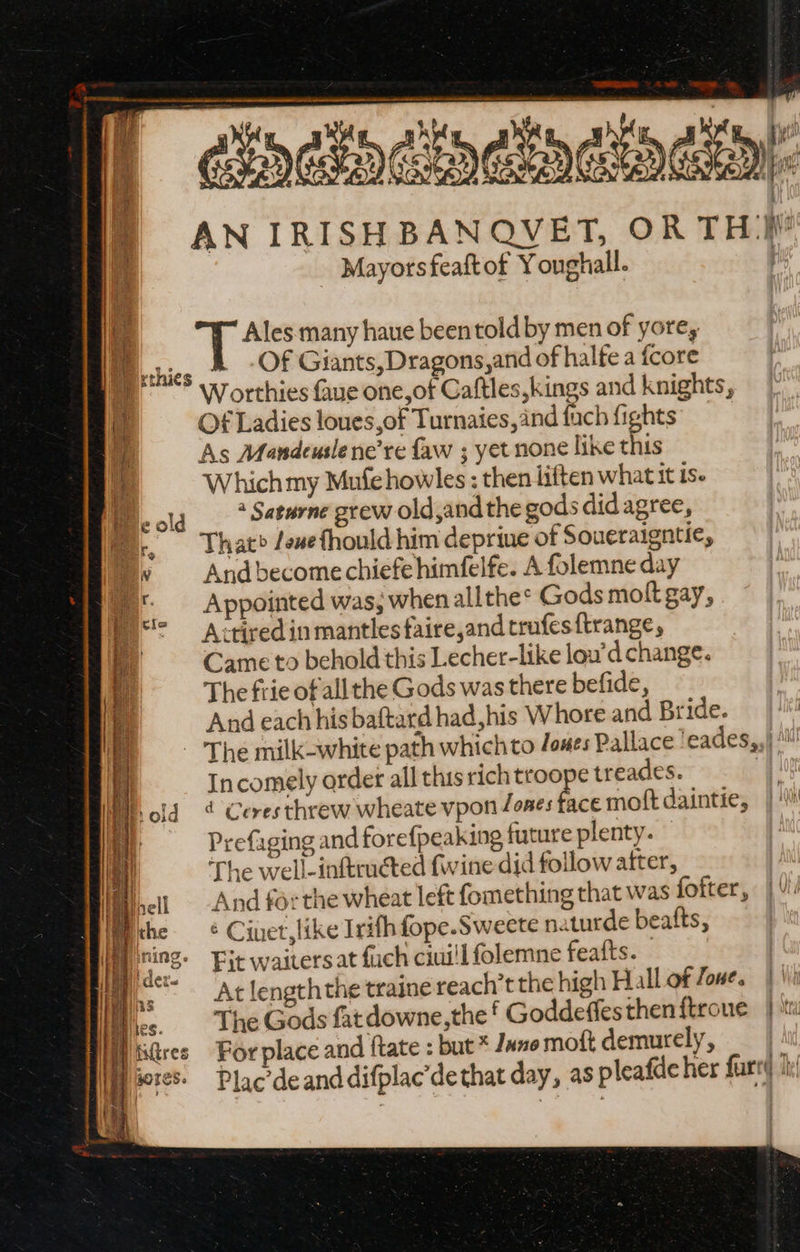 AN IRISH BANQVET, OR TH
Mayors feaſt of Youghall.
TAles many haue been told by men of yore,
Of Giants, Dragons, and of halfe a ſcore
rthies
Worthies ſaue one, of Caſtles, kings and knights,
Of Ladies loues, of Turnaies, and ſuch fights
As Mandeuile ne're ſaw ; yet none like this
Which my Muſe howles : then liſten what it is.
e old
ᵃ Saturne grew old, and the gods did agree,
r,
Thatᵇ Ioue ſhould him depriue of Soueraigntie,
And become chiefe himſelfe. A ſolemne day
r.
Appointed was; when all theᶜ Gods moſt gay,
Attired in mantles faire, and truſes ſtrange,
Came to behold this Lecher-like lou'd change.
The frie of all the Gods was there beſide,
And each his baſtard had, his Whore and Bride.
The milk-white path which to Ioues Pallace leades,
In comely order all this rich troope treades.
old
ᵈ Ceres threw wheate vpon Ioues face moſt daintie,
Preſaging and foreſpeaking future plenty.
The well-inſtructed ſwine did follow after,
hell
And for the wheat left ſomething that was ſofter,
the
ᵉ Ciuet, like Iriſh ſope. Sweete naturde beaſts,
ning.
Fit waiters at ſuch ciuill ſolemne feaſts.
der-
At length the traine reach't the high Hall of Ioue.
as
The Gods ſat downe, theᶠ Goddeſſes then ſtroue
es.
For place and ſtate : but * Iuno moſt demurely,
ſiſtres
Plac'de and diſplac'de that day, as pleaſde her furr
ſores.